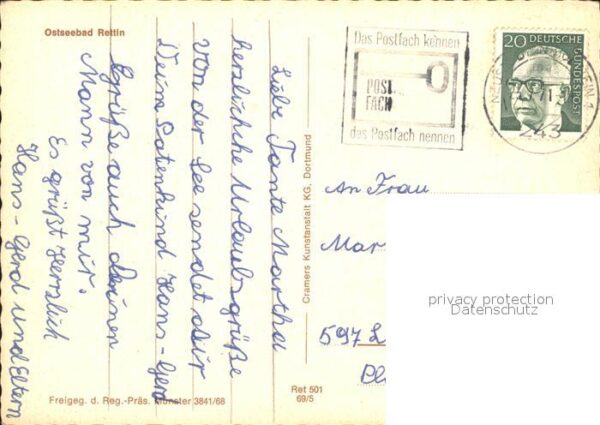 Ostseebad Rettin
Liebe Tante Martha
herzliche Urlaubsgrüße
von der See sendet dir
Deim Patenkind Hans-Gerd
Grüße auch deinen
Mann von mir.
Es grüßt Herzlich
Hans-Gerd und Eltern
Freigeg. d. Reg.-Präs. Münster 3841/68
Ret 501
69/5
Cramers Kunstanstalt KG, Dortmund
Das Postfach kennen
POST
FACH
das Postfach nennen
20 DEUTSCHE
BUNDESPOST
243
An Frau
Mar
597 L
privacy protection
Datenschutz